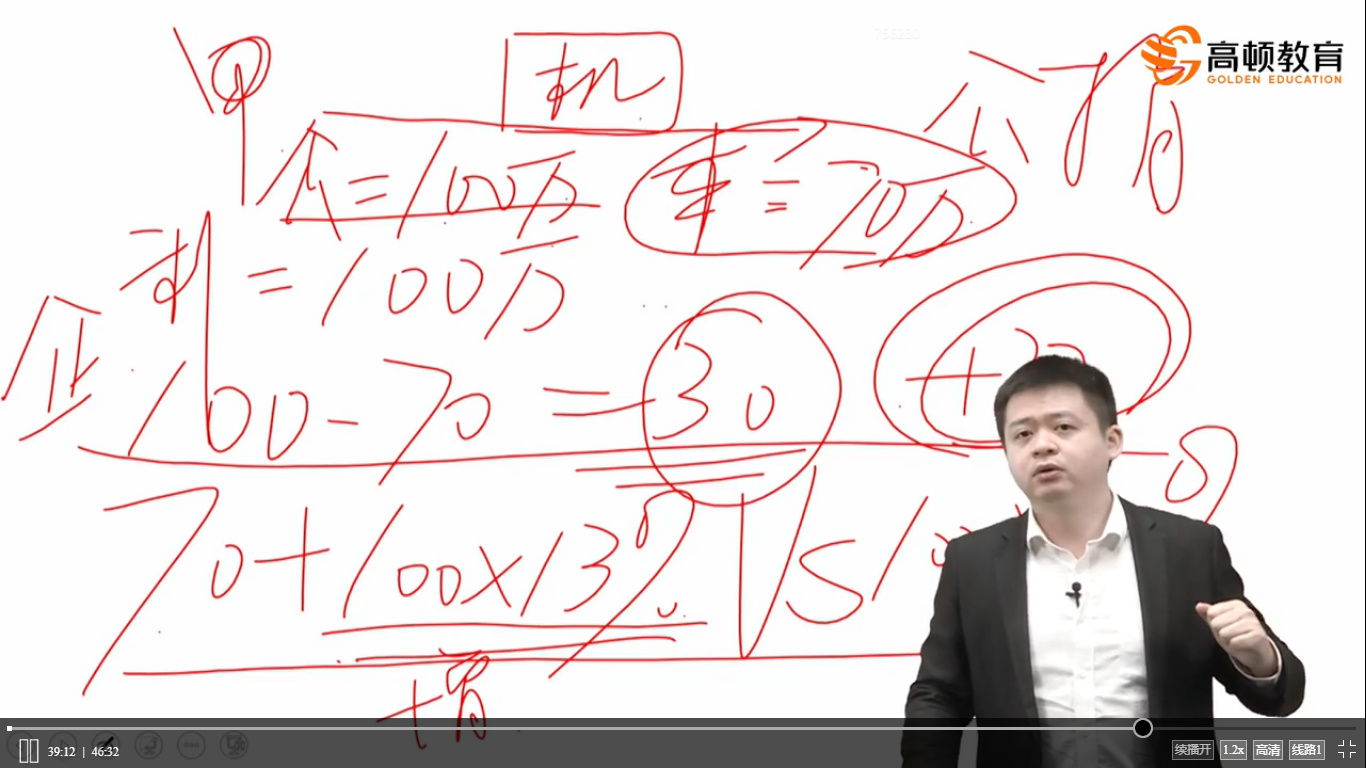 756230
高顿教育
GOLDEN EDUCATION
甲
机
公=100万
=70万
利=100万
企
100-70=30
70+100×13% VS 10
增
39:12 | 46:32
续播开 1.2x 高清 线路1